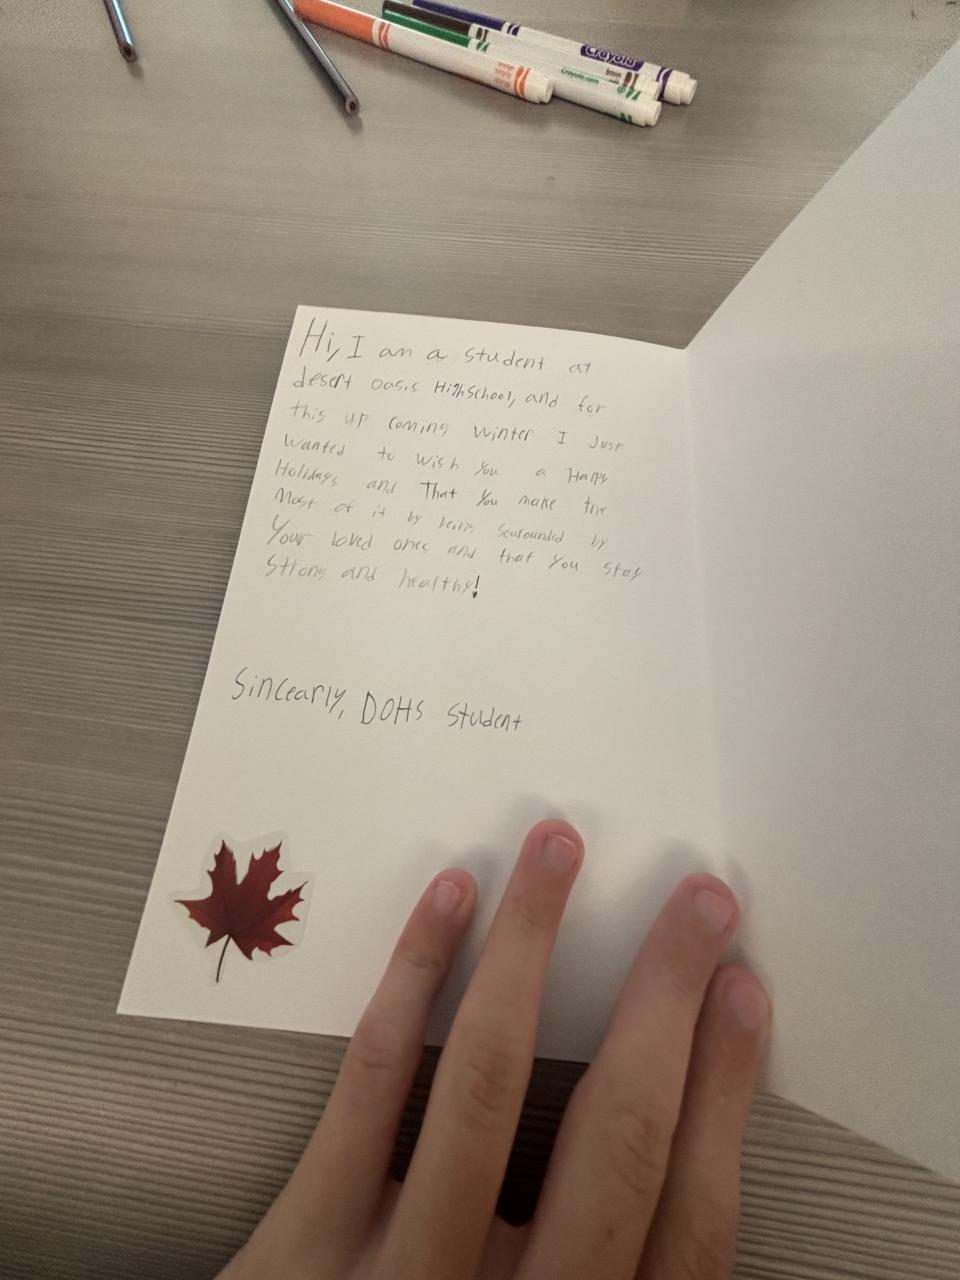 Crayola
Crayola.com
Hi, I am a student at
desert oasis HighSchool, and for
this up coming winter I Just
wanted to wish you a Happy
Holidays and That you make the
Most of it by being sourounded by
Your loved ones and that you stay
Strong and healthy!
Sincearly, DOHS student